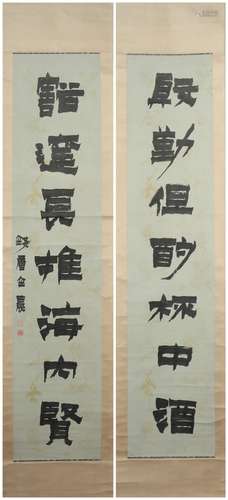 殷勤但酌杯中酒
豁達長推海内賢
錢唐金農